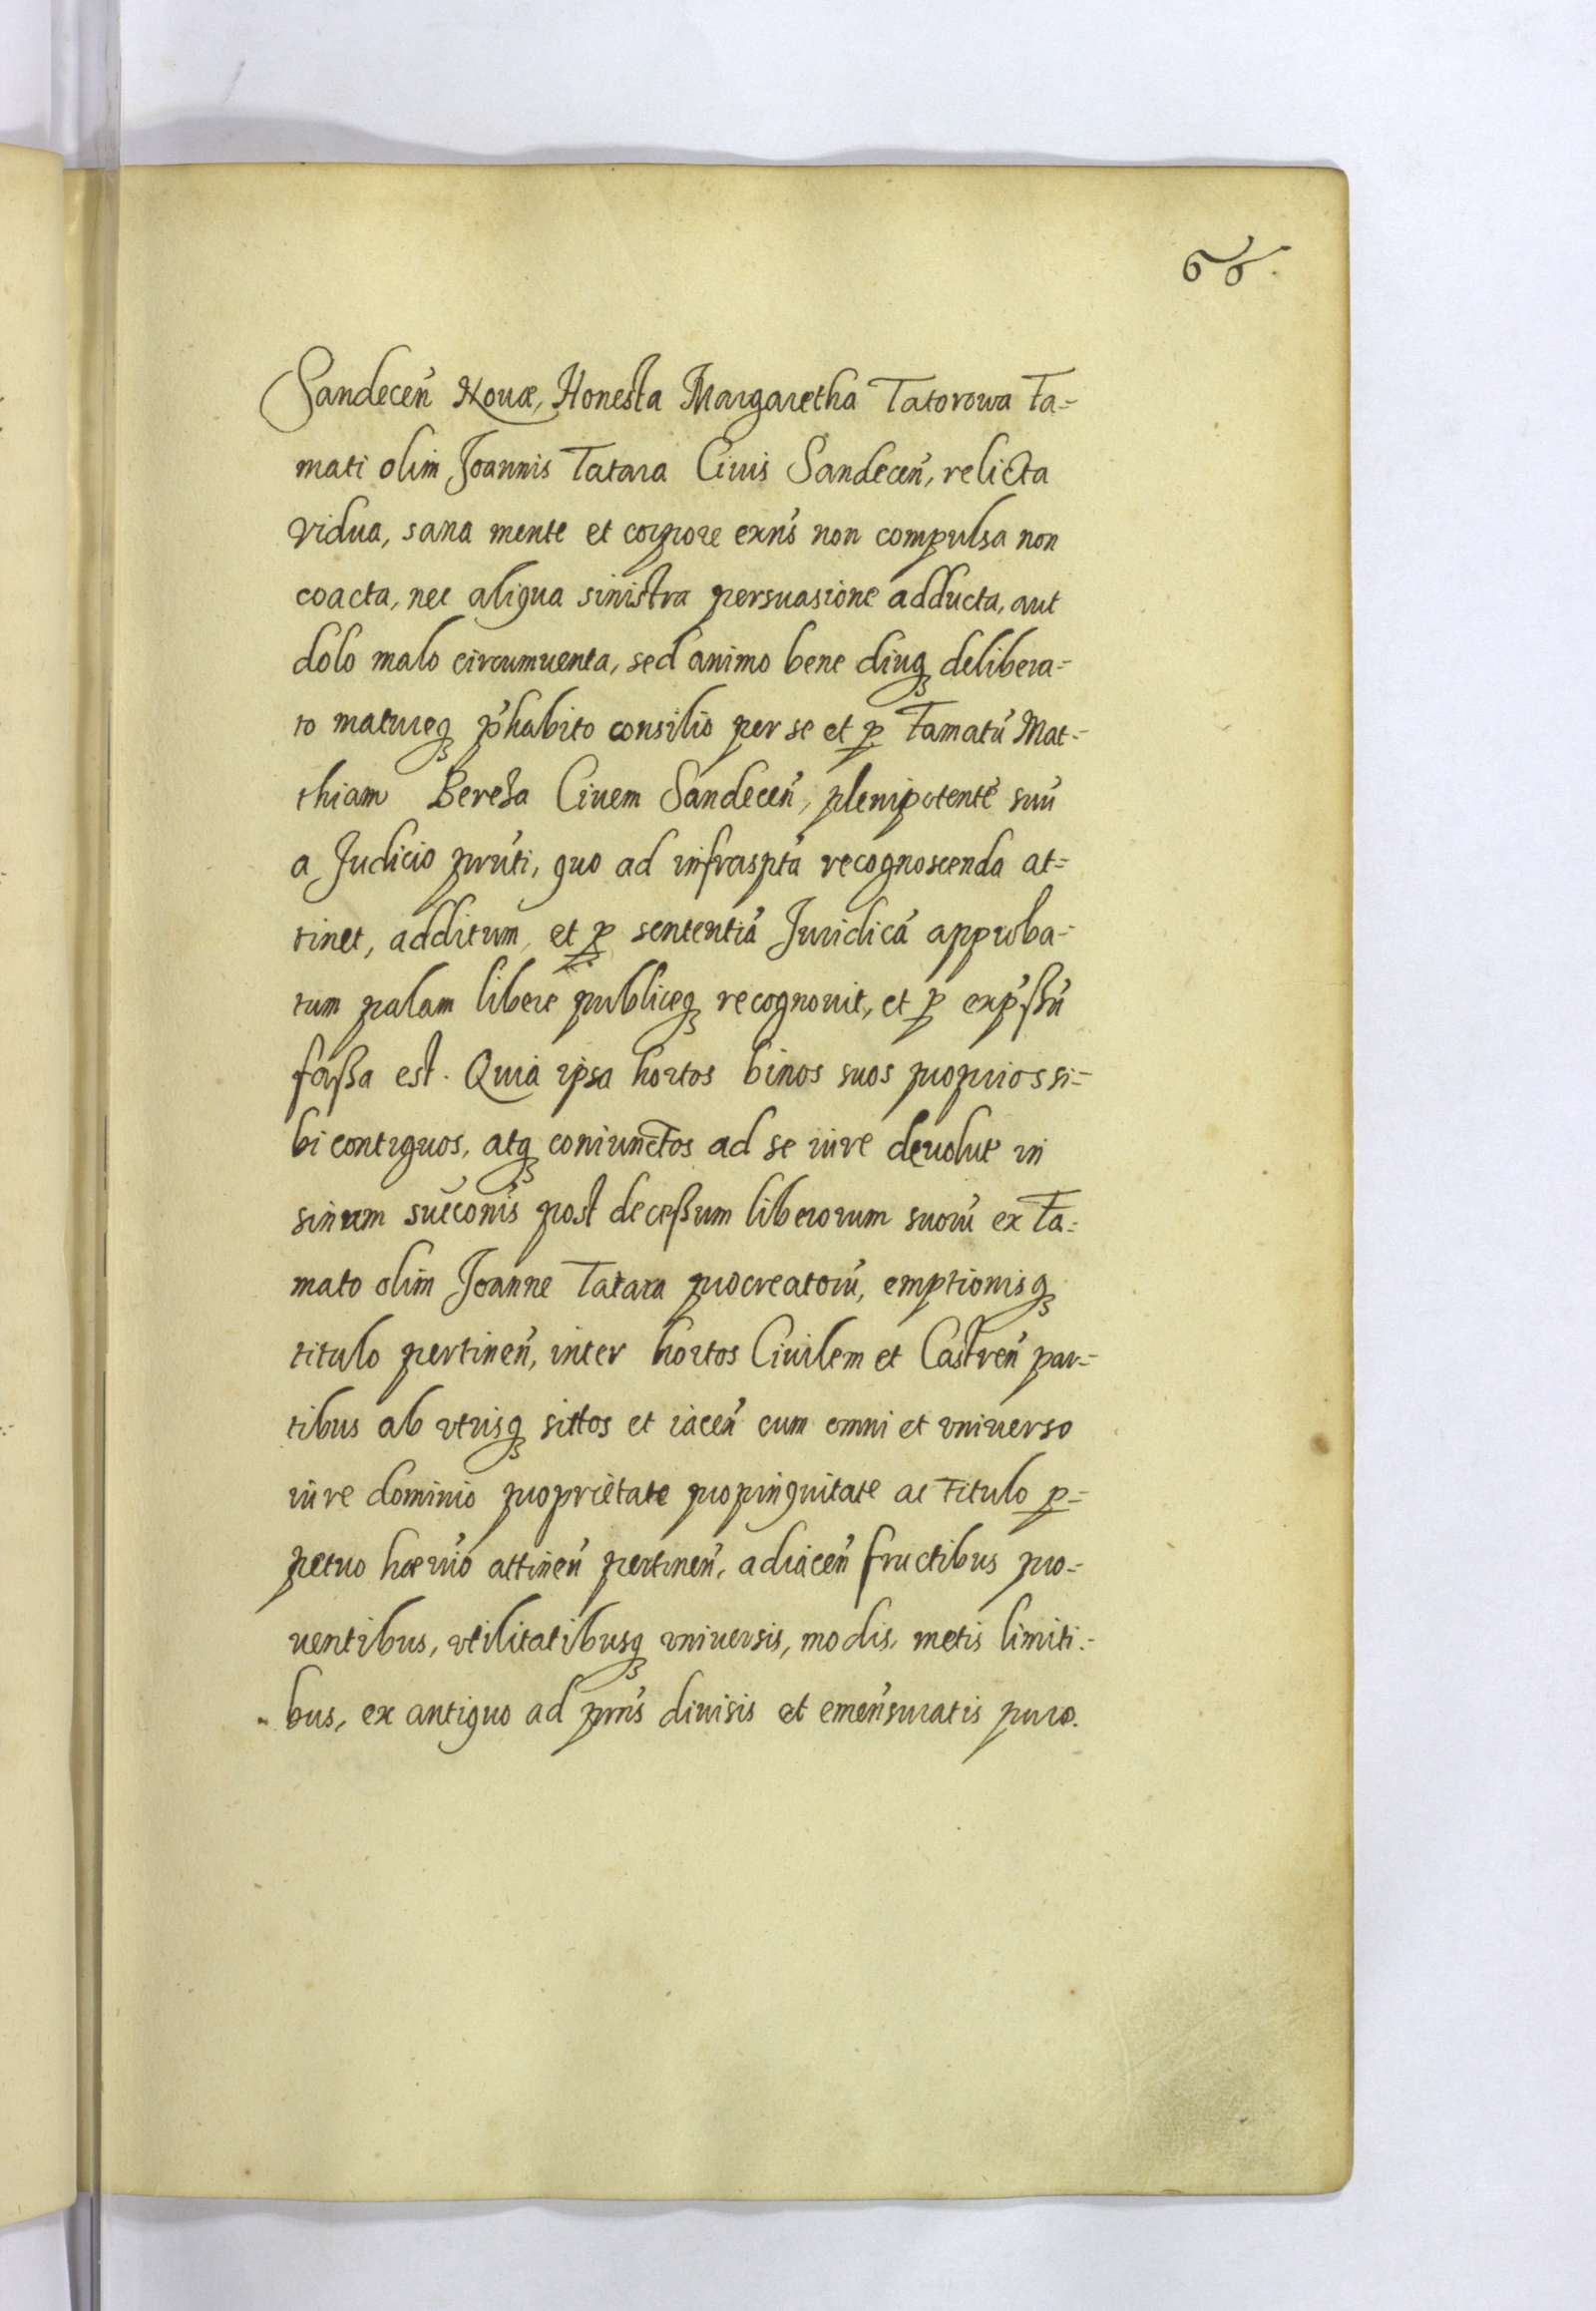 66.
Sandeceñ Nouæ, Honesta Margaretha Tatorowa Fa=
mati olim Joannis Tatara Ciuis Sandeceñ, relicta
vidua, sana mente et corpore exñs non compulsa non
coacta, nec aliqua sinistra persuasione adducta, aut
dolo malo circumuenta, sed animo bene diuqꝫ delibera=
to matureqꝫ p̃habito consilio per se et ꝑ Famatũ Mat=
thiam Bereza Ciuem Sandeceñ, plenipotentẽ suũ
a Judicio pñti, quo ad infrasptã recognoscenda at=
tinet, additum, et ꝑ sententiã Juridicã approba=
tum palam libere publiceqꝫ recognouit, et ꝑ exp̃ßũ
faßa est. Quia ipsa hortos binos suos proprios si=
bi contiguos, atqꝫ coniunctos ad se iure deuolut̃ in
sinum succõnis post deceßum liberorum suorũ ex Fa=
mato olim Joanne Tatara procreatorũ, emptionisqꝫ
titulo pertineñ, inter hortos Ciuilem et Castreñ par=
tibus ab vtrisqꝫ sittos et iaceñ cum omni et vniuerso
iure dominio proprietate propinquitate ac titulo ꝑ=
petuo hærẽio attineñ pertineñ, adiaceñ fructibus pro=
uentibus, vtilitatibusqꝫ vniuersis, modis, metis limiti=
bus, ex antiquo ad pñs diuisis et emensuratis puro.